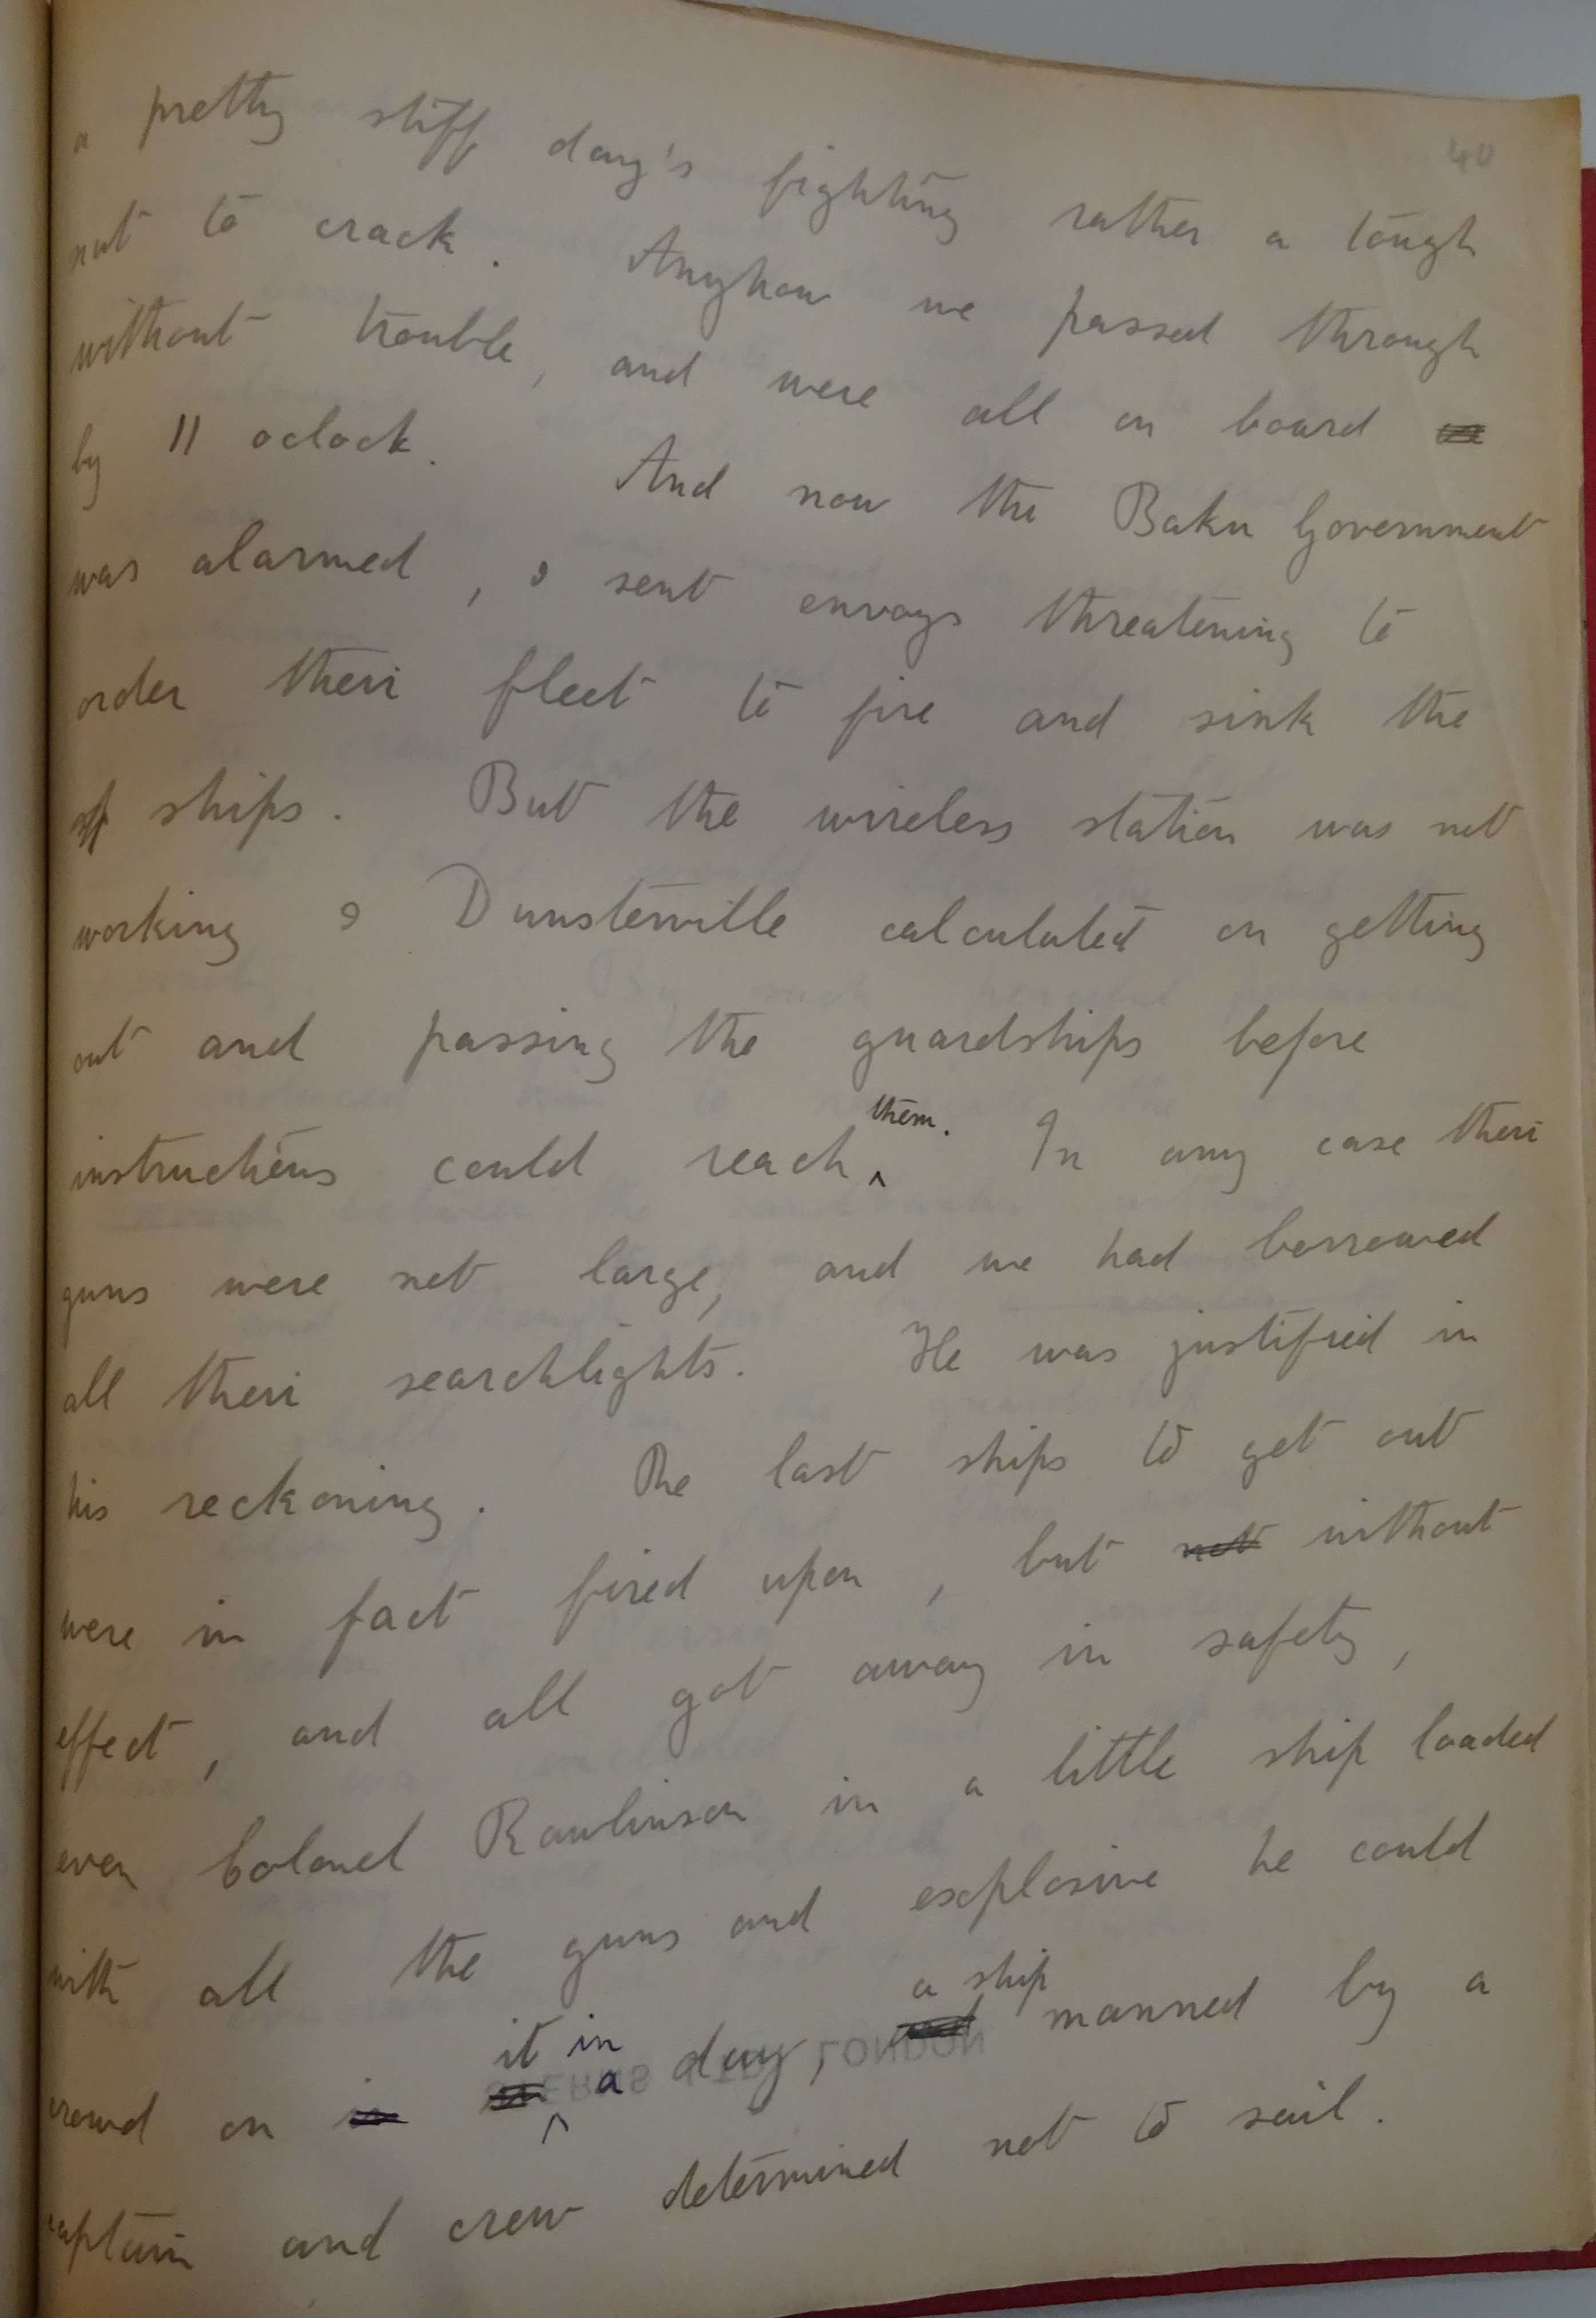 40
a pretty stiff day's fighting rather a tough
nut to crack. Anyhow we passed through
without trouble, and were all on board
by 11 oclock. And now the Baku Government
was alarmed, & sent envoys threatening to
order their fleet to fire and sink the
ships. But the wireless station was not
working & Dunsterville calculated on getting
out and passing the guardships before
instructions could reach ^ them. In any case their
guns were not large, and we had borrowed
all their searchlights. He was justified in
his reckoning. The last ships to get out
were in fact fired upon, but not without
effect, and all got away in safety,
even Colonel Rawlinson in a little ship loaded
with all the guns and explosive he could
crowd on it in a day, a ship manned by a
captain and crew determined not to sail.